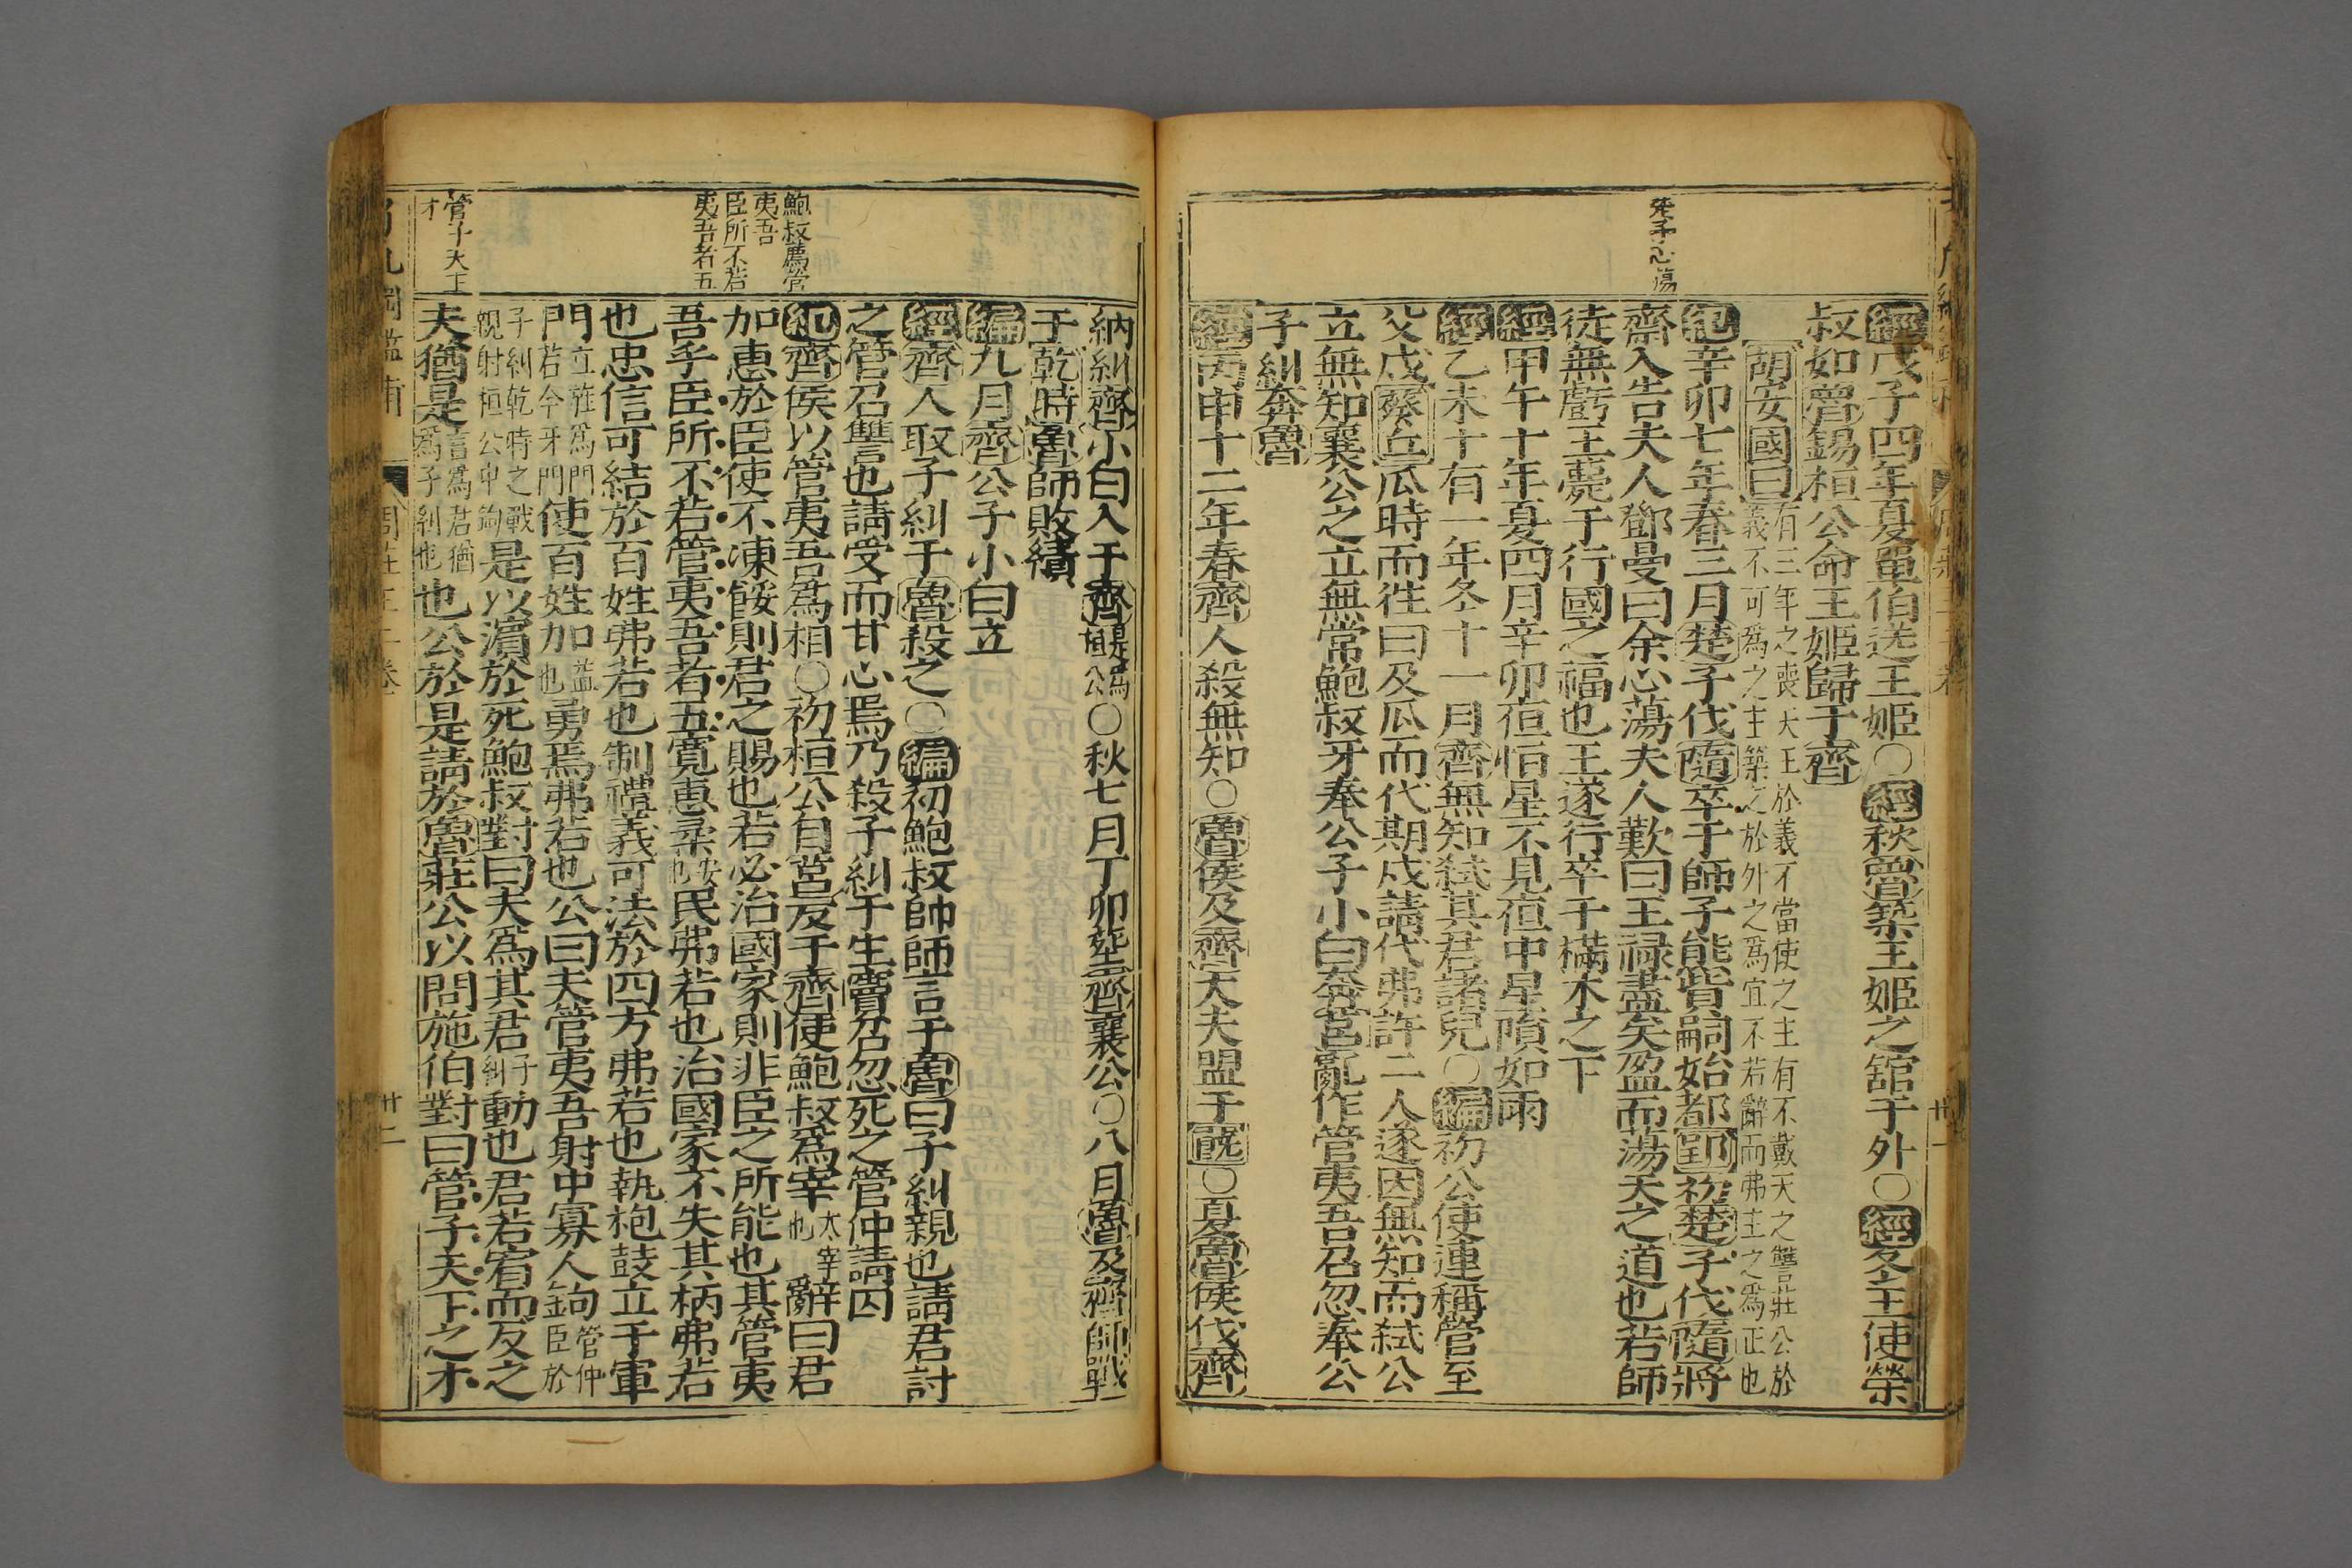 經戊子四年夏單伯送王姬○經秋魯築王姬之舘于外○經冬王使榮
叔如魯錫桓公命王姬歸于齊
胡安國曰有三年之喪天王於義不當使之主有不戴天之讐莊公於
義不可爲之主築之於外之爲宜不若辭而弗主之爲正也
紀辛卯七年春三月楚子伐隨卒于師子熊貲嗣始都郢初楚子伐隨將
齋入告夫人鄧曼曰余心蕩夫人歎曰王祿盡矣盈而蕩天之道也若師
徒無虧王薨于行國之福也王遂行卒于樠木之下
經甲午十年夏四月辛卯夜恒星不見夜中星隕如雨
經乙未十有一年冬十一月齊無知弒其君諸兒○編初公使連稱管至
父戍葵丘瓜時而徃曰及瓜而代期戍請代弗許二人遂因無知而弒公
立無知襄公之立無常鮑叔牙奉公子小白奔莒亂作管夷吾召忽奉公
子糾奔魯
經丙申十二年春齊人殺無知○魯侯及齊大夫盟于蔇○夏魯侯伐齊
納糾齊小白入于齊是爲桓公○秋七月丁卯塟齊襄公○八月魯及齊師戰
于乾時魯師敗績
編九月齊公子小白立
經齊人取子糾于魯殺之○編初鮑叔帥師言于魯曰子糾親也請君討
之管召讐也請受而甘心焉乃殺子糾于生竇召忽死之管仲請囚
紀齊侯以管夷吾爲相○初桓公自莒反于齊使鮑叔爲宰太宰也辭曰君
加惠於臣使不凍餒則君之賜也若必治國家則非臣之所能也其管夷
吾乎臣所不若管夷吾者五寬惠柔安也民弗若也治國家不失其柄弗若
也忠信可結於百姓弗若也制禮義可法於四方弗若也執枹鼓立于軍
門立旌爲門若今牙門使百姓加益也勇焉弗若也公曰夫管夷吾射中寡人鉤管仲臣於
子糾乾時之戰親射桓公中鉤是以濵於死鮑叔對曰夫爲其君子糾動也君若宥而反之
夫猶是言爲君猶爲子糾也也公於是請於魯莊公以問施伯對曰管子天下之才
楚子心蕩
鮑叔薦管
夷吾
臣所不若
夷吾者五
管子天下
才
廿一
廿二